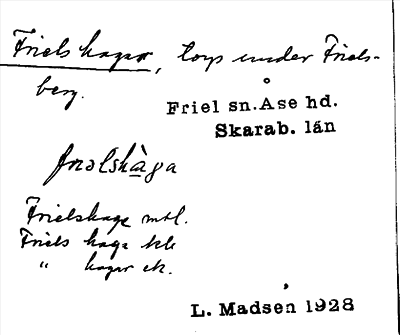 Friels hagar, torp under Friels-
berg.
Friel sn. Åse hd.
Skarab. län
frælshàga
Frielshage mtl.
Friels haga kk
" hagar ek.
L. Madsen 1928